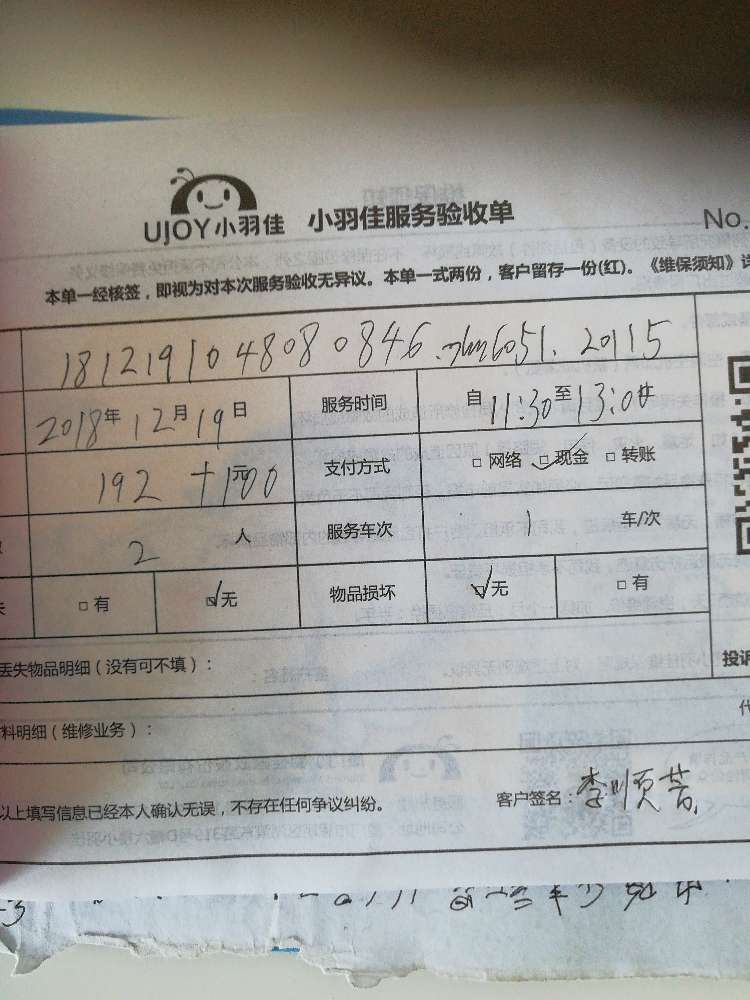 UJOY小羽佳 小羽佳服务验收单 No.
本单一经核签，即视为对本次服务验收无异议。本单一式两份，客户留存一份(红)。《维保须知》详
181219104808 0846 6051. 20115
2018年12月19日 服务时间 自11:30至13:00止
192 +100元 支付方式 □ 网络 □ 现金 □ 转账
2 人 服务车次 1 车/次
□ 有 □ 无 物品损坏 □ 无 □ 有
丢失物品明细（没有可不填）： 投诉
料明细（维修业务）：
以上填写信息已经本人确认无误，不存在任何争议纠纷。 客户签名：李顺